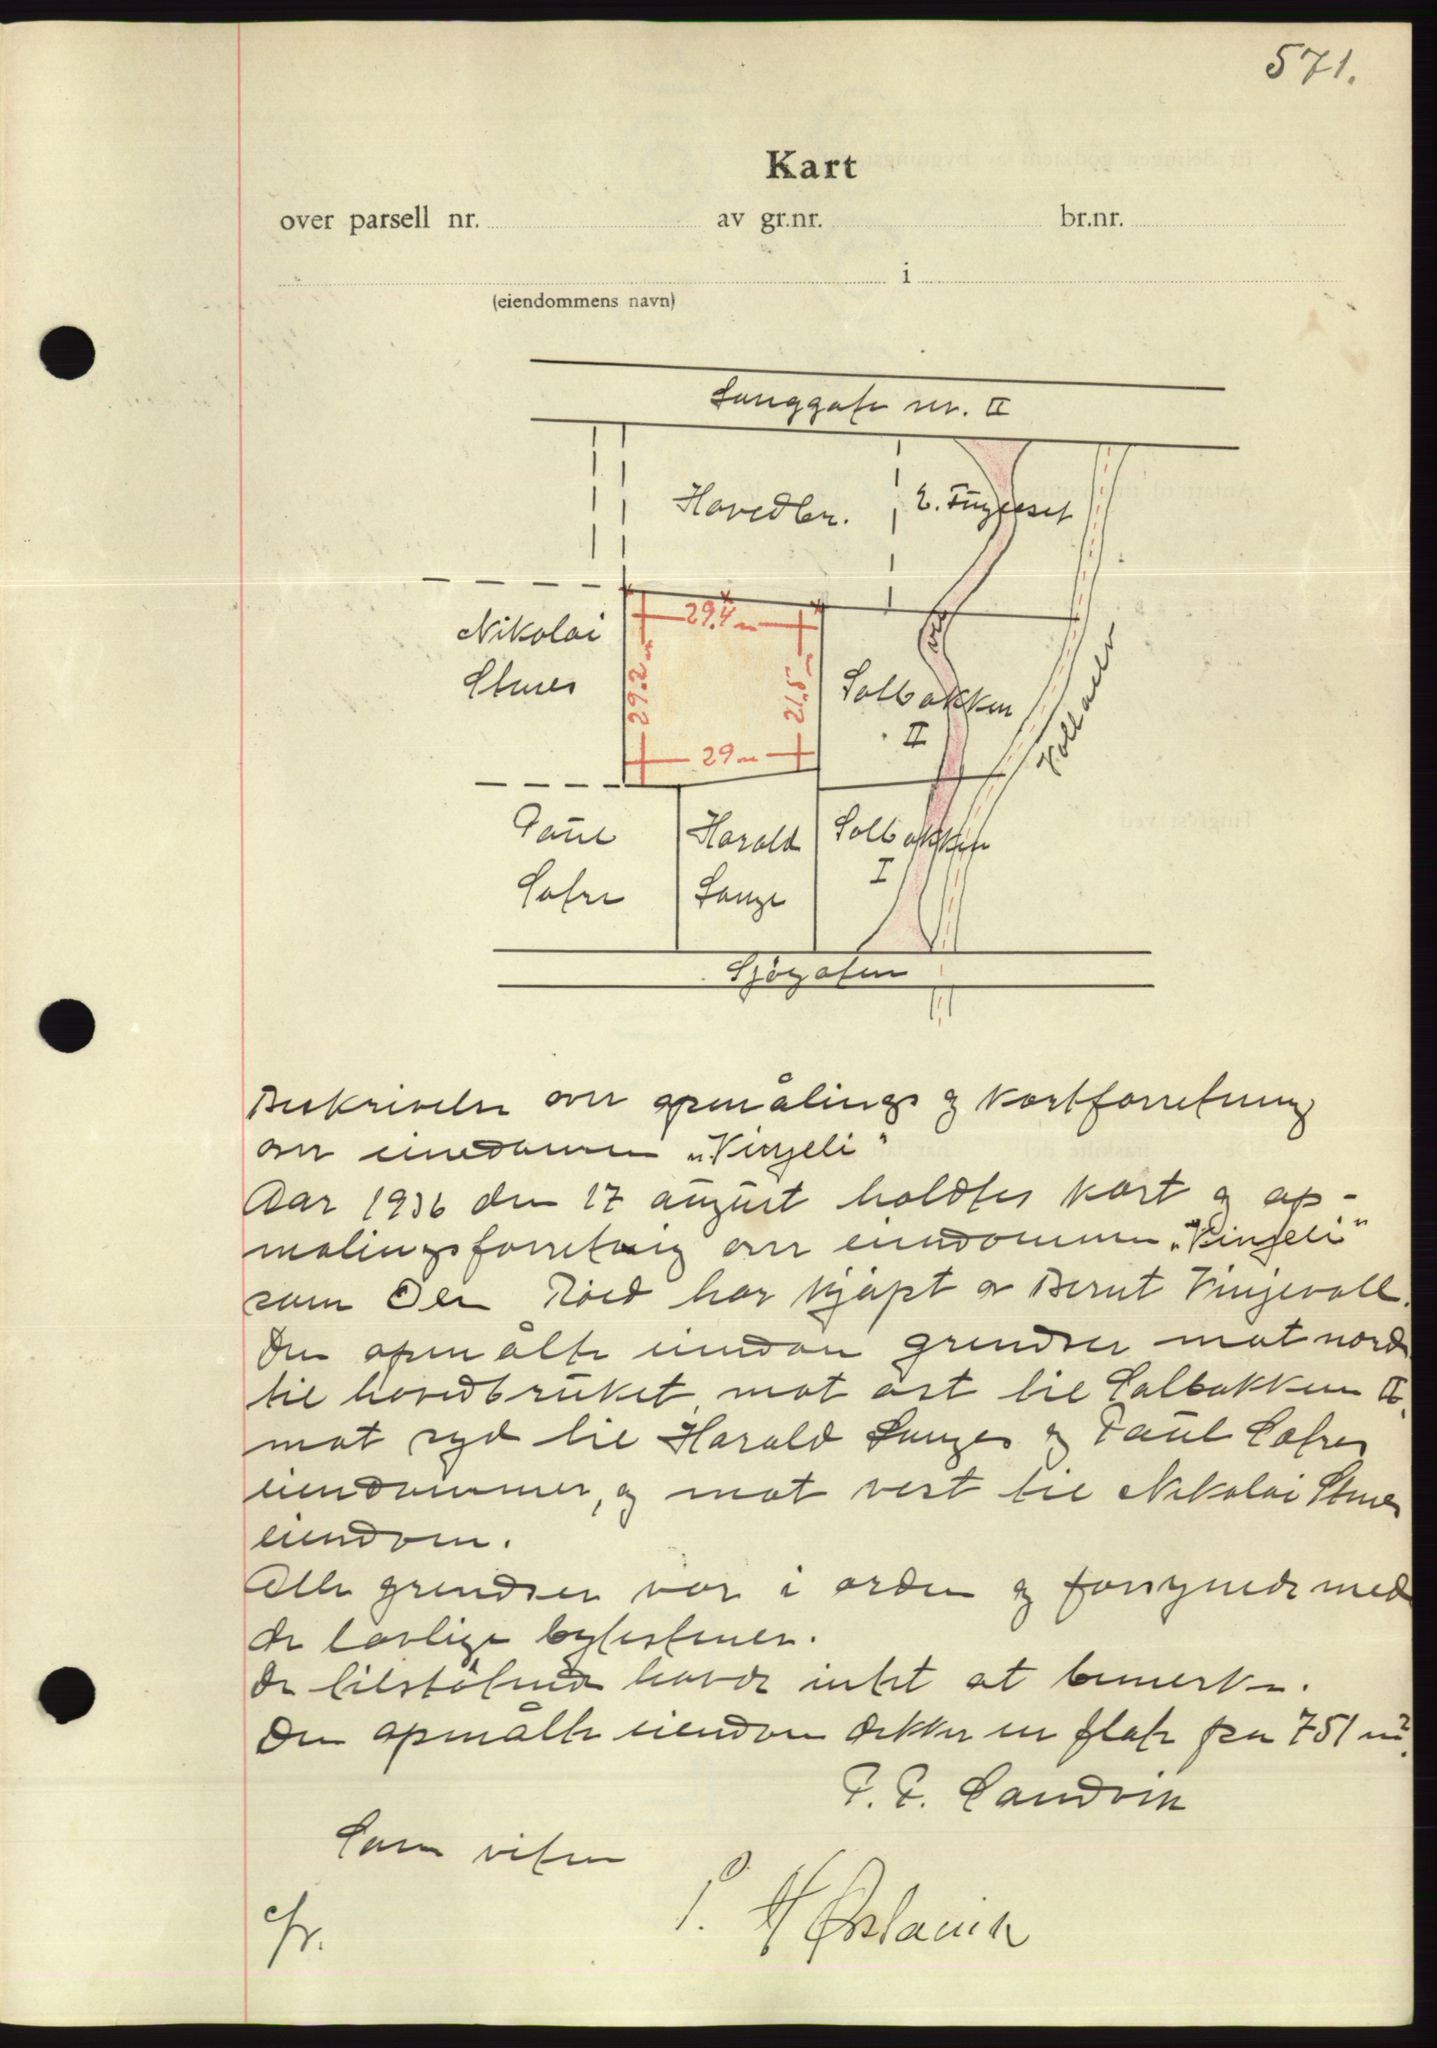 571.
Kart
over parsell nr. av gr.nr. br.nr.
i
(eiendommens navn)
Langgate nr. II
Hovedbr.
Nikolai
29.4 m
29.2 m
21.5 m
29 m
vei
Solbakken
II
Vollaelv
Paul
Harald
Solbakken
I
Sjøgaten
Beskrivelse over opmålings og kartforretning
over eiendommen „Vinjeli"
Aar 1936 den 17 august holdtes kart og op-
målingsforretning over eiendommen „Vinjeli"
som Röed har kjöpt av Bernt Vinjevoll.
Den opmålte eiendom grendser mot nord
til hovedbruket mot öst til Solbakken II,
mot syd til Harald og Paul
eiendommer, og mot vest til Nikolai
eiendom.
Alle grendser var i orden og forsynede med
de lovlige bytestener.
De tilstötende havde intet at bemerke.
Den opmålte eiendom dekker en flate paa 751 m²
P. P. Sandvik
Som vitne
P. H Ørslavik